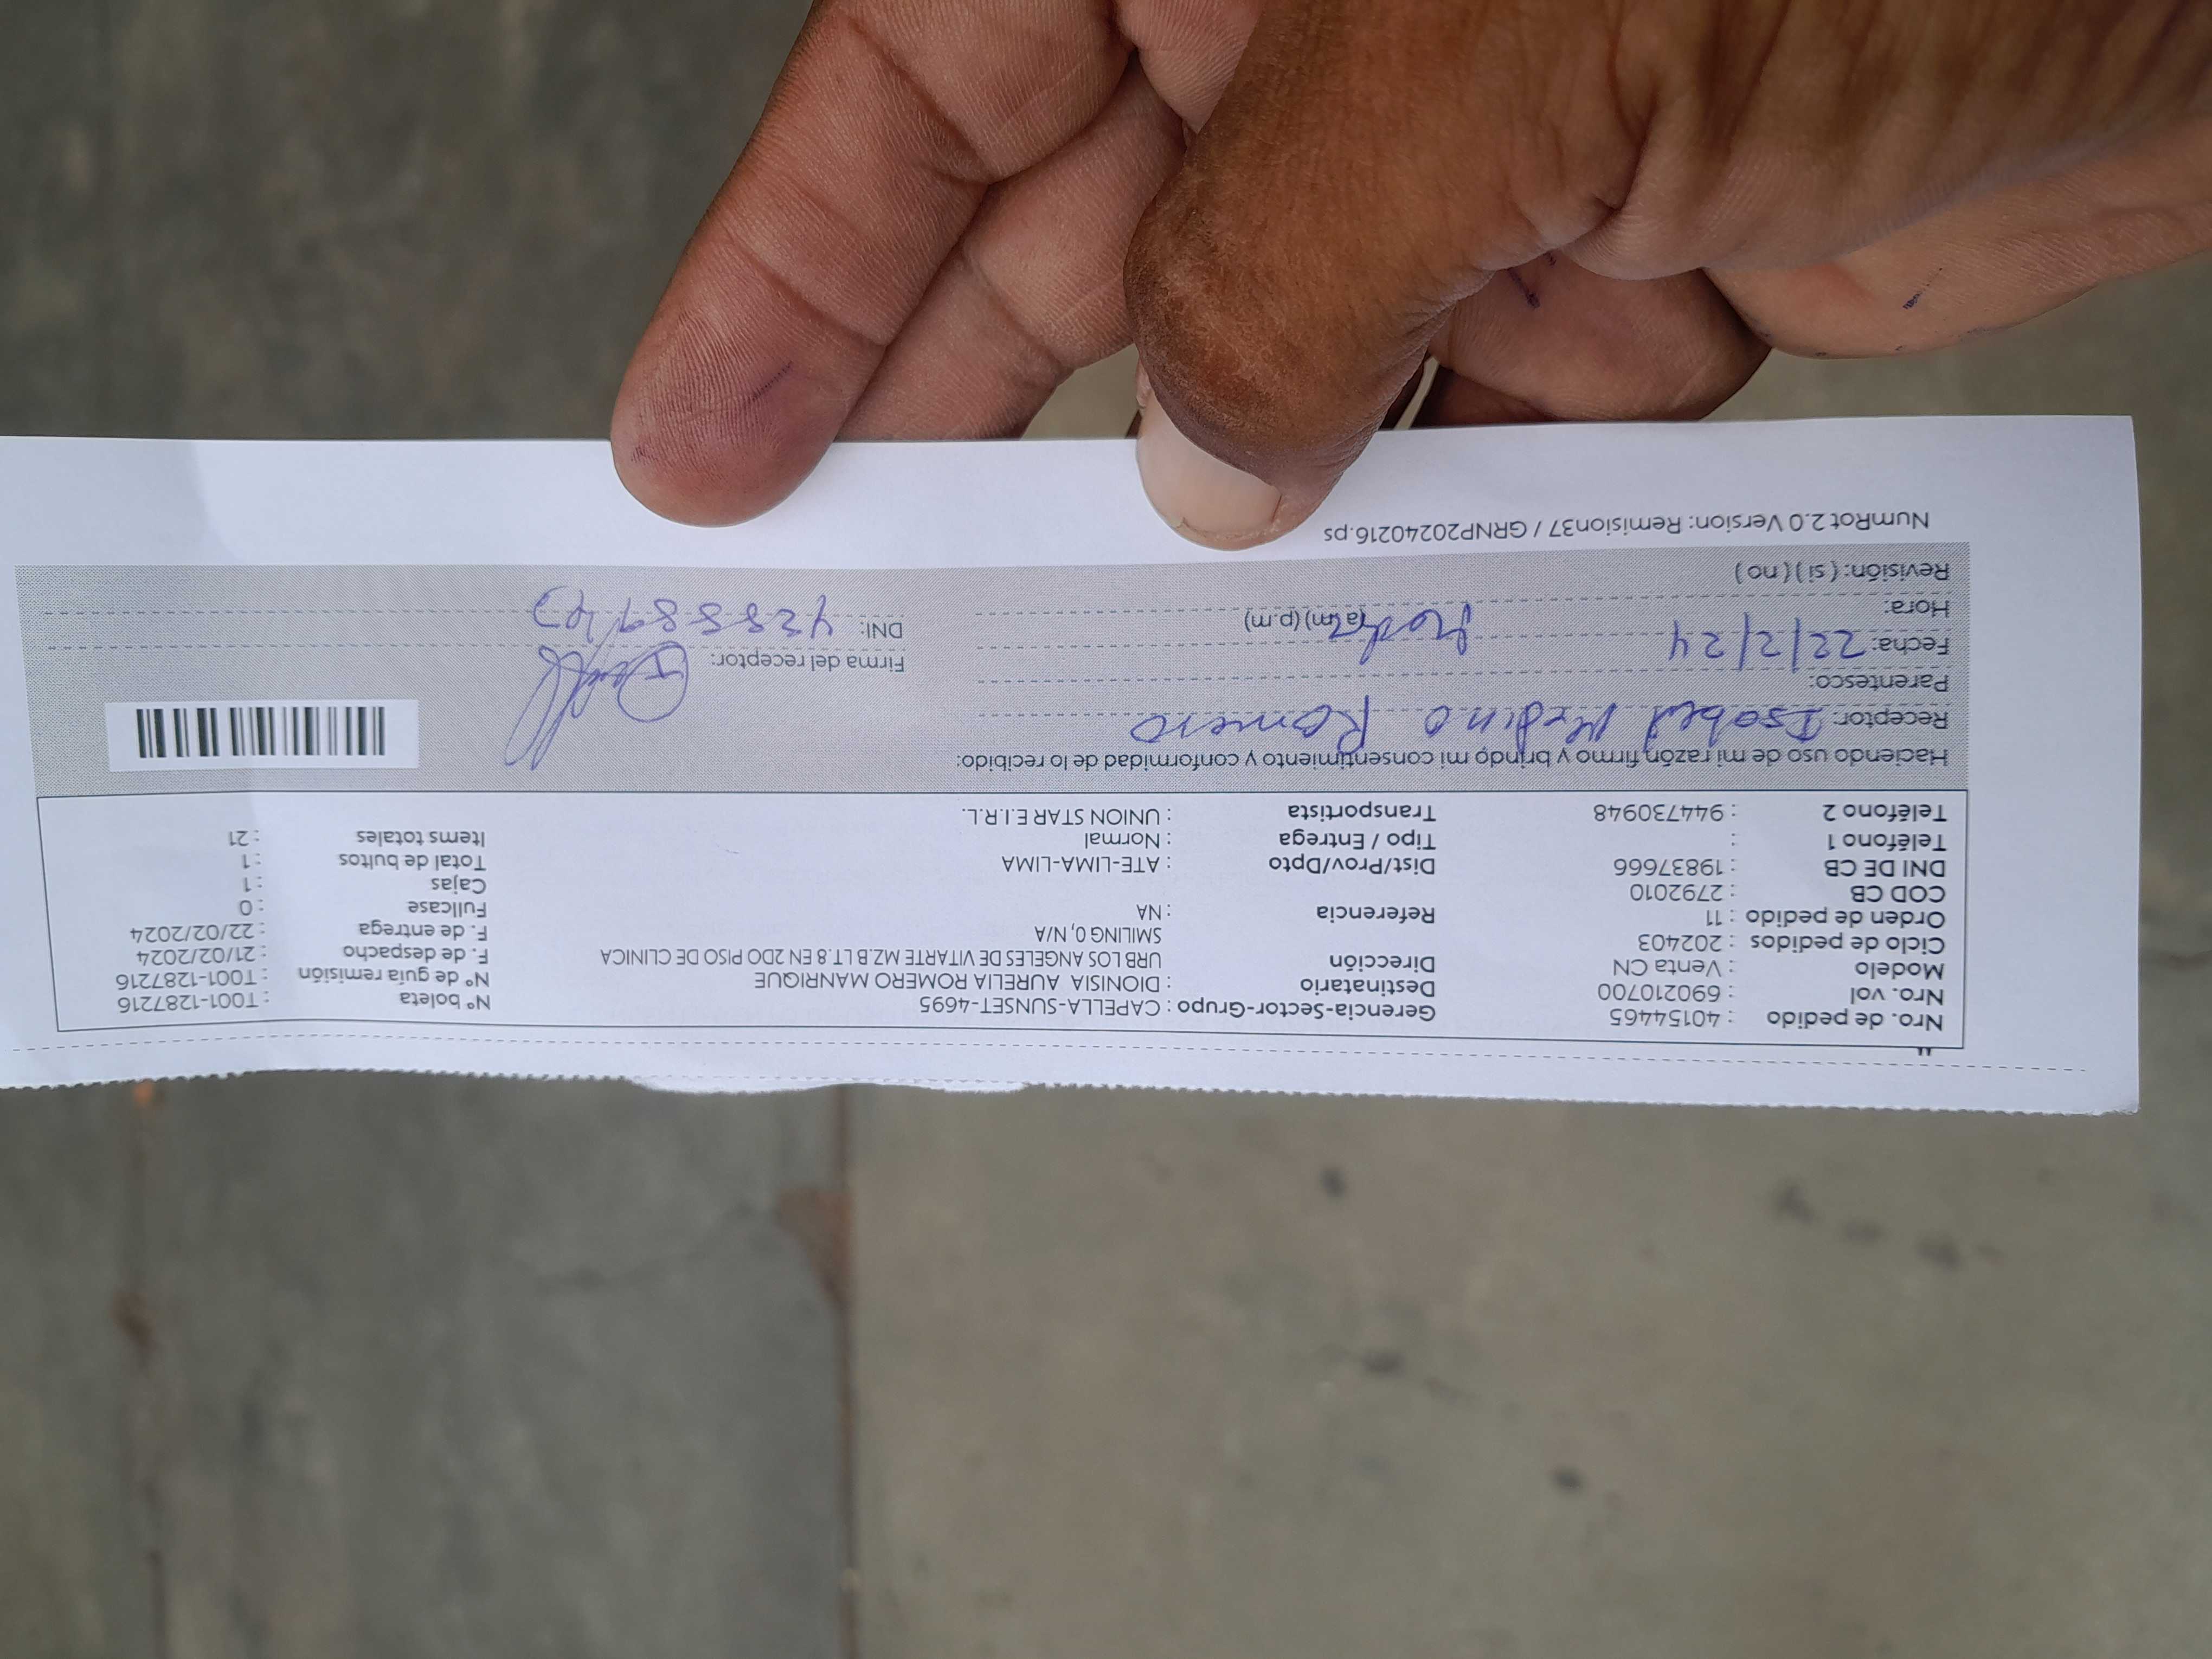 Nro. de pedido : 40154465 Gerencia-Sector-Grupo : CAPELLA-SUNSET-4695 Nº boleta : T001-1287216
Nro. vol : 690210700 Destinatario : DIONISIA AURELIA ROMERO MANRIQUE Nº de guía remisión : T001-1287216
Modelo : Venta CN Dirección URB LOS ANGELES DE VITARTE MZ.B LT.8 EN 2DO PISO DE CLINICA F. de despacho : 21/02/2024
Ciclo de pedidos : 202403 SMILING 0, N/A F. de entrega : 22/02/2024
Orden de pedido : 11 Referencia : NA Fullcase : 0
COD CB : 2792010 Cajas : 1
DNI DE CB : 19837666 Dist/Prov/Dpto : ATE-LIMA-LIMA Total de bultos : 1
Teléfono 1 : Tipo / Entrega : Normal Items totales : 21
Teléfono 2 : 944730948 Transportista : UNION STAR E.I.R.L.
Haciendo uso de mi razón firmo y brindo mi consentimiento y conformidad de lo recibido:
Receptor: Isabel Medina Romero
Parentesco:
Firma del receptor:
Fecha: 22/2/24
DNI:
Hora: (a.m) (p.m)
Revisión: ( si ) ( no )
NumRot 2.0 Version: Remision37 / GRNP20240216.ps